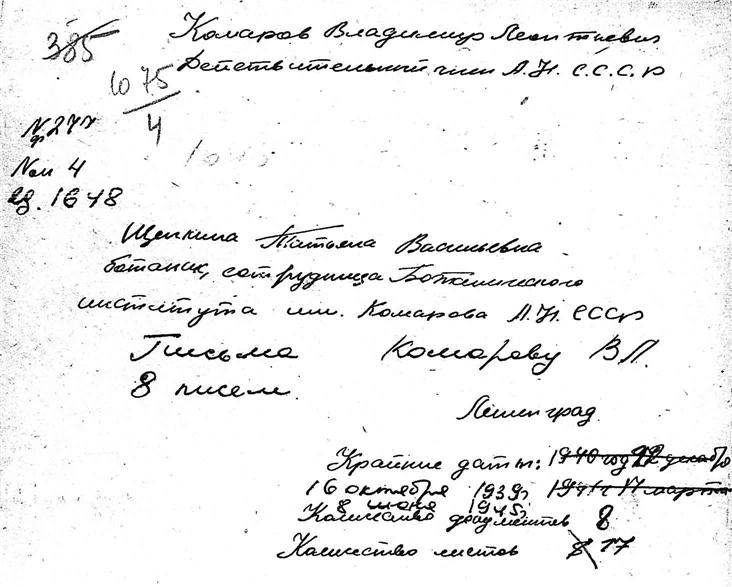 Комаров Владимир Леонтьевич
385
Действительный член А.Н. С.С.С.Р
1075
4
№ф 277
№оп 4
ед. 1648
Щепкина Татьяна Васильевна
ботаник, сотрудница Ботанического
института им. Комарова А.Н. СССР
Письма Комарову В.Л.
8 писем.
Ленинград
Крайние даты: 1940 год 22 декабр
16 октября 1939г 1941г 17 марта
8 июня 1945г
Количество документов 8
Количество листов 8 17